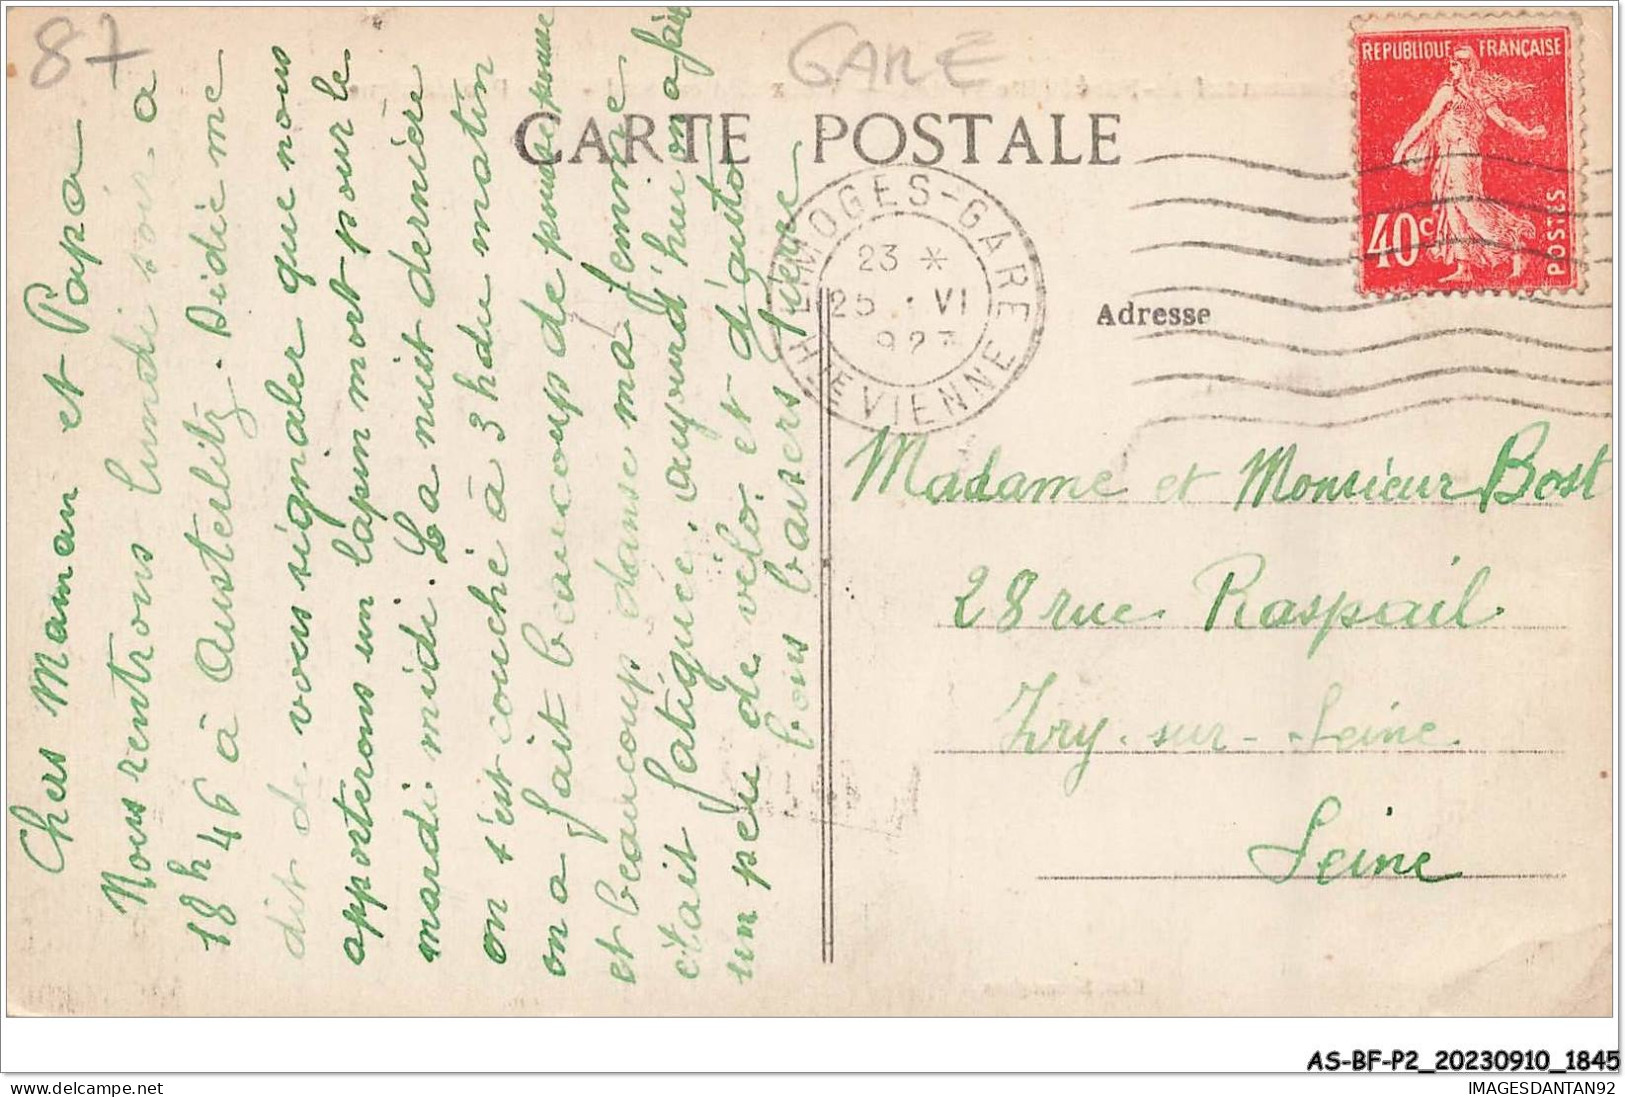 87
GARE
CARTE POSTALE
REPUBLIQUE FRANÇAISE
40c
POSTES
LIMOGES-GARE
23 *
25 VI
927
Hte VIENNE
Adresse
Chers Maman et Papa
Nous rentrons lundi soir à
18h46 à Austerlitz. Didi me
dit de vous signaler que nous
apporterons un lapin mort pour le
mardi midi. La nuit dernière
on s'est couché à 3h du matin
on a fait beaucoup de
et beaucoup danse ma femme
était fatiguée. aujourd'hui on a fait
un peu de vélo. et
bons baisers
Madame et Monsieur Bost
28 rue Raspail
Ivry-sur-Seine
Seine
AS-BF-P2_20230910_1845
delcampe.net
IMAGESDANTAN92